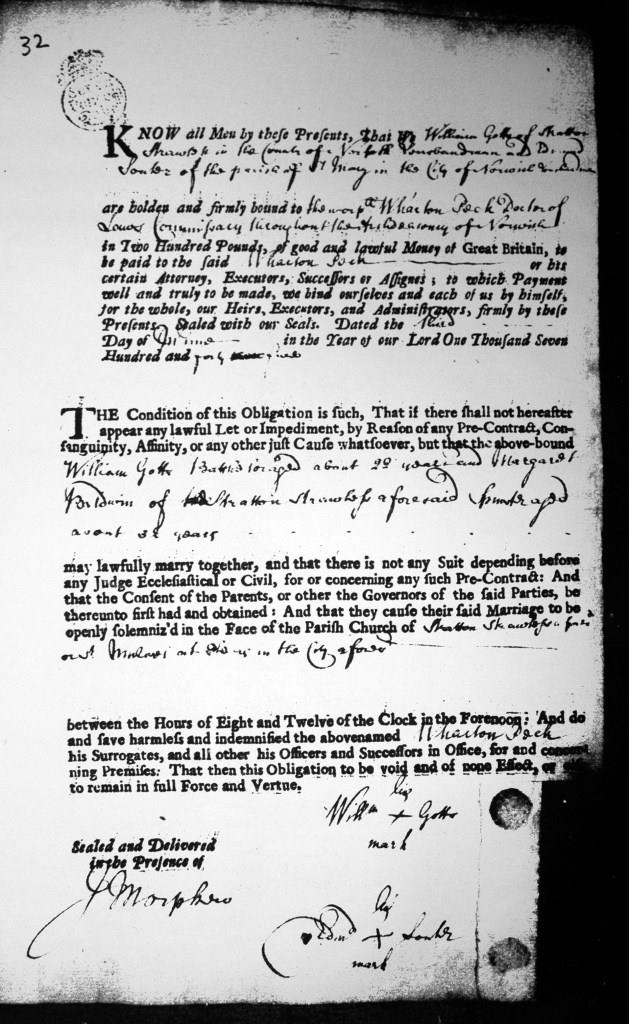 32
KNOW all Men by these Presents, That We William Gotts of Stratton
Strawless in the County of Norfolk Husbandman and
of the parish of St Mary in the City of Norwich
are holden and firmly bound to the worp.ll Wharton Peck Doctor of
Laws Commissary throughout the Archdeaconry of Norwich
in Two Hundred Pounds, of good and lawful Money of Great Britain, to
be paid to the said Wharton Peck or his
certain Attorney, Executors, Successors or Assignes; to which Payment
well and truly to be made, we bind ourselves and each of us by himself,
for the whole, our Heirs, Executors, and Administrators, firmly by these
Presents. Sealed with our Seals. Dated the third
Day of in the Year of our Lord One Thousand Seven
Hundred and forty
THE Condition of this Obligation is such, That if there shall not hereafter
appear any lawful Let or Impediment, by Reason of any Pre-Contract, Con-
sanguinity, Affinity, or any other just Cause whatsoever, but that the above-bound
William Gotts aged about 22 years and Margaret
Baldwin of Stratton Strawless aforesaid aged
about 32 years
may lawfully marry together, and that there is not any Suit depending before
any Judge Ecclesiastical or Civil, for or concerning any such Pre-Contract: And
that the Consent of the Parents, or other the Governors of the said Parties, be
thereunto first had and obtained: And that they cause their said Marriage to be
openly solemniz'd in the Face of the Parish Church of Stratton Strawless
or St in the City afores.d
between the Hours of Eight and Twelve of the Clock in the Forenoon: And do
and save harmless and indemnified the abovenamed Wharton Peck
his Surrogates, and all other his Officers and Successors in Office, for and concer-
ning Premises: That then this Obligation to be void and of none Effect, or else
to remain in full Force and Vertue.
his
Will.m + Gotts
mark
Sealed and Delivered
in the Presence of
J Morphew
his
Edm.d + Souter
mark